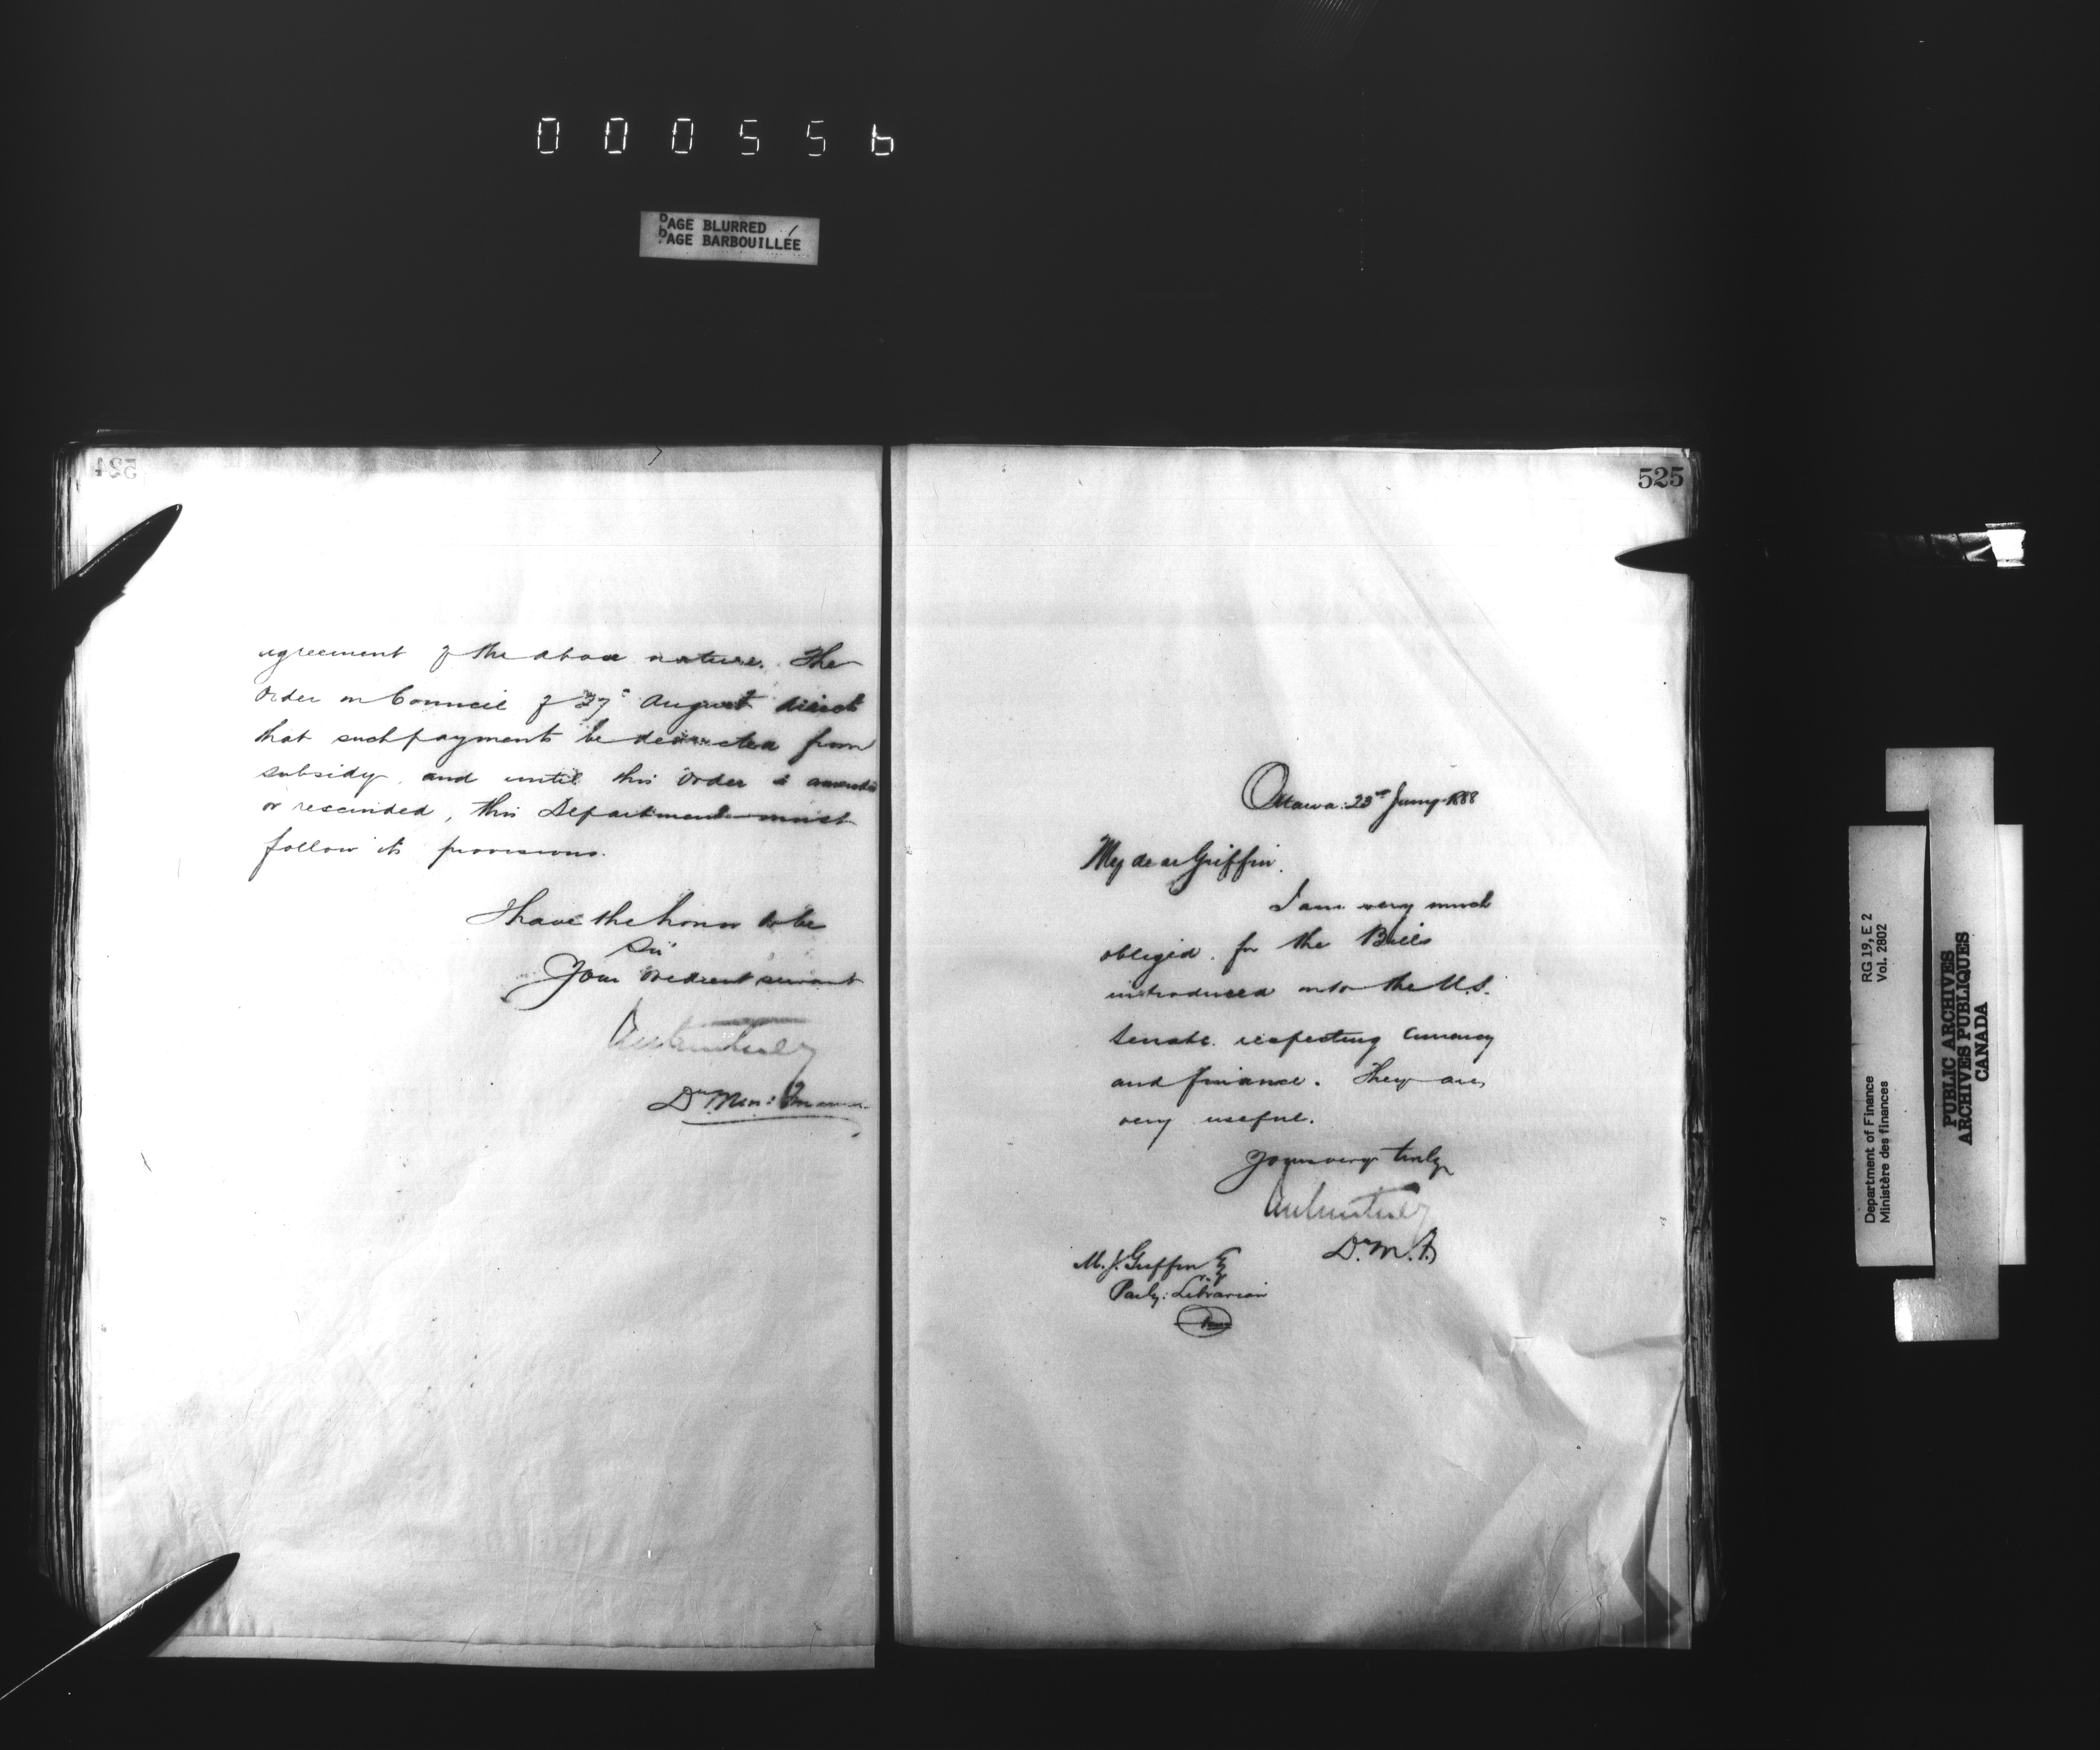 000556
PAGE BLURRED
PAGE BARBOUILLÉE
524
agreement of the above nature. The
Order in Council of 27th August direct
that such payments be deducted from
subsidy, and until this Order is amended
or rescinded, this Department must
follow its provisions.
I have the honor to be
Sir
Your obedient servant
Dy. Min:
525
Ottawa: 23rd Jany. 1888
My dear Griffin.
I am very much
obliged for the Bills
introduced into the U.S.
Senate respecting Currency
and finance. They are
very useful.
Yours very truly
D.M.F.
M. J. Griffin Esq
Parly: Librarian
Department of Finance RG 19, E 2
Ministère des finances Vol. 2802
PUBLIC ARCHIVES
ARCHIVES PUBLIQUES
CANADA